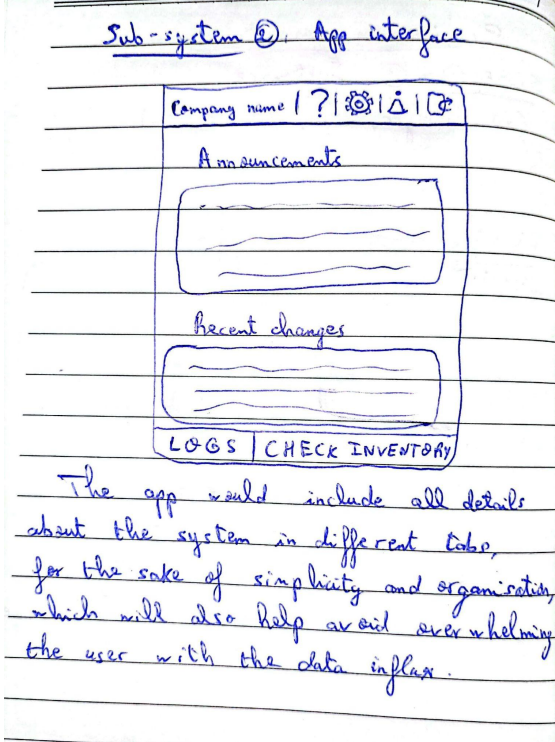 Sub-system ②. App interface
Company name | ? |
Announcements
Recent changes
LOGS | CHECK INVENTORY
The app would include all details
about the system in different tabs,
for the sake of simplicity and organisation,
which will also help avoid overwhelming
the user with the data influx.